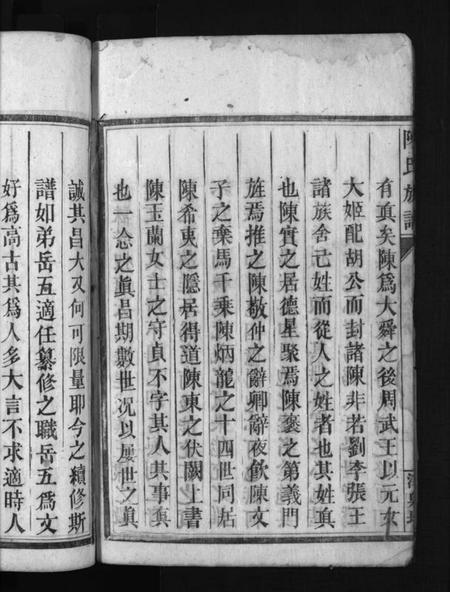 陳氏族譜
有眞矣陳爲大舜之後周武王以元女
大姬配胡公而封諸陳非若劉李張王
諸族舍己姓而從人之姓者也其姓眞
也陳實之居德星聚焉陳褒之第義門
旌焉推之陳敬仲之辭卿辭夜飲陳文
子之棄馬千乘陳炳龍之十四世同居
陳希夷之隱居得道陳東之伏闕上書
陳玉蘭女士之守貞不字其人其事眞
也一念之眞昌期數世况以屢世之眞
誠其昌大又何可限量耶今之續修斯
譜如弟岳五適任纂修之職岳五爲文
好爲高古其爲人多大言不求適時人